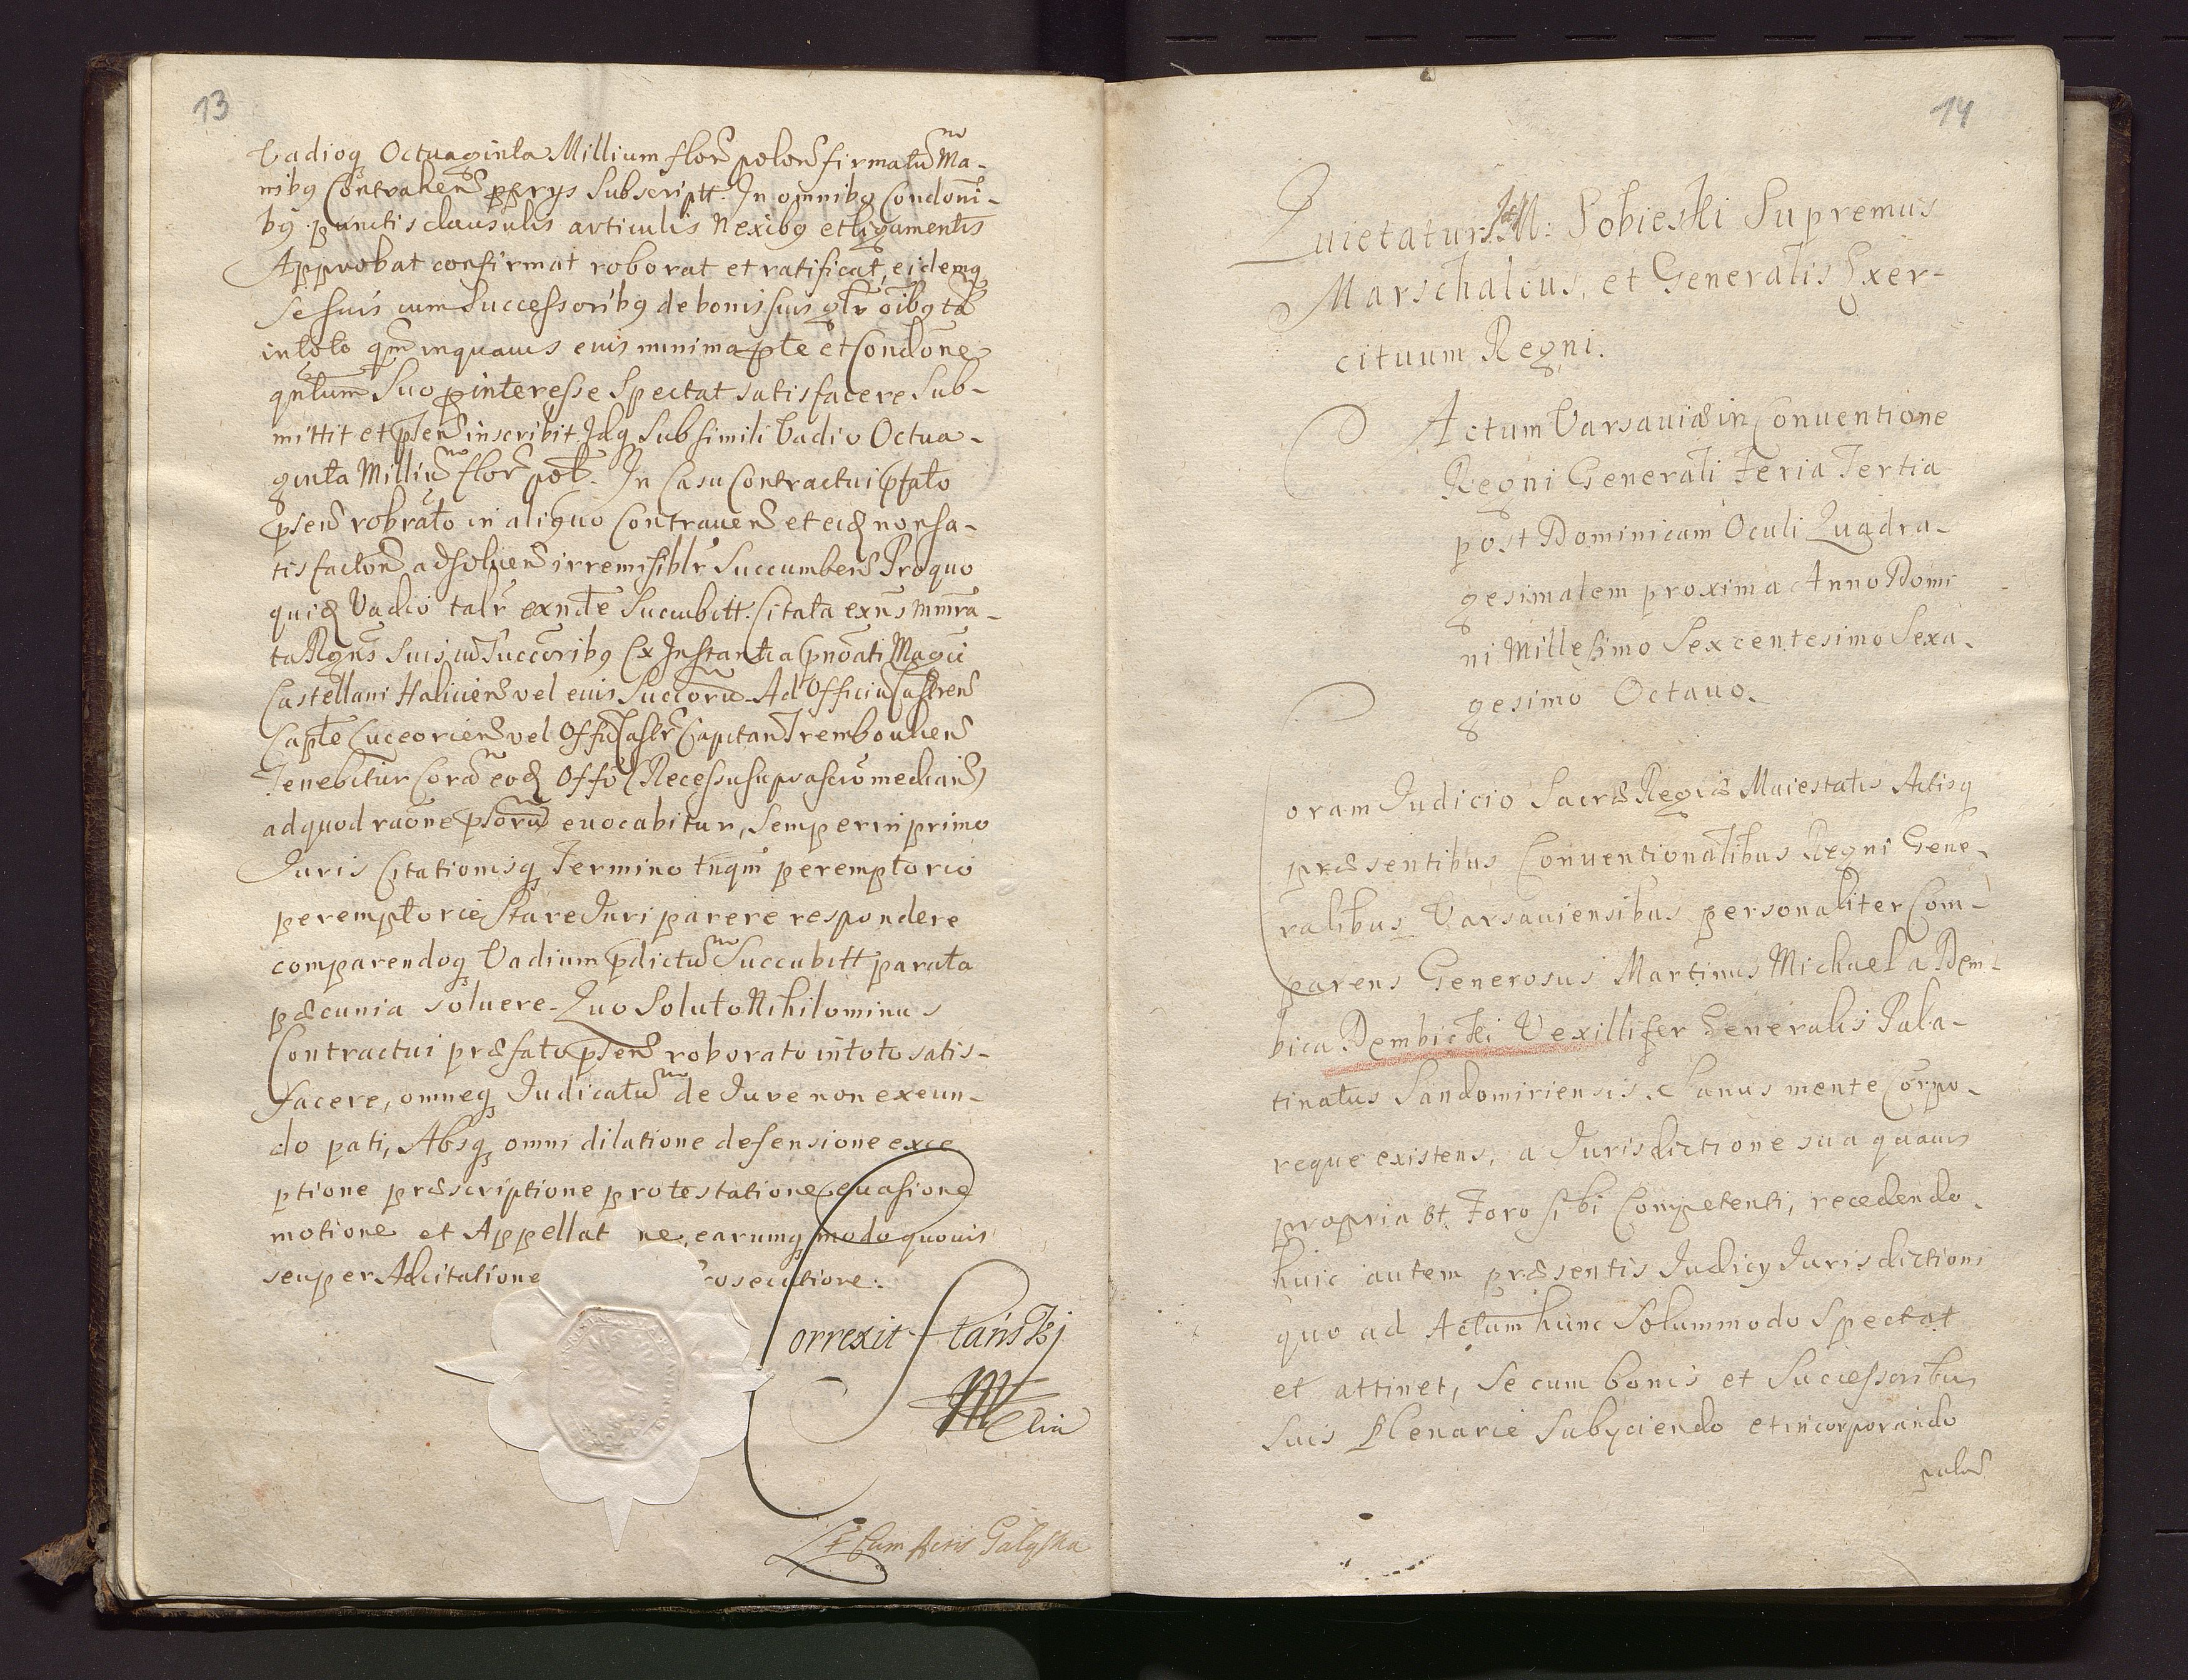 13
Vadioq Octuaginta Millium flor polon firmatu Ma-
nibq Contrahen pprys Subscriptt. In omnibq Condoni-
bq punctis clausulis articulis Nexibq et ligamentis
Approbat confirmat roborat et ratificat, eidemq
Se suis cum Successoribq de bonis suis glr oibq tā
in toto qm inquavis eius minima pte et Condone
qntum Suo pinteresse Spectat satisfacere Sub-
mittit et psen inscribit Idq Sub simili Vadio Octua-
ginta Milliu flor pol. In Casu Contractui pfato
psen robrato in aliquo Contraven et eid non sa-
tisfacton adsolven irremisiblr Succumben Pro quo
quid Vadio talr exnde Succubitt. Citata
Suis Succoribq Ex Instantia Magci
Castellani Halicien vel eius Succoru. Ad Officiu Castren
Capte Luceorien vel Offi Castr Capitan Trembowlien
Tenebitur Cora eod Offo (Recessu suprascro median)
ad quod raone psoru evocabitur, Semper in primo
Juris Citationisq Termino tnqm peremptorio
peremptorie Stare Juri parere respondere
comparendoq Vadium pdictu Succubitt parata
pæcunia solvere. Quo Soluto Nihilominus
Contractui præfato psen roborato in toto satis-
facere, omneq Judicatu de Jure non exeun-
do pati, Absq omni dilatione defensione exce
ptione præscriptione protestatione evasione
motione et Appellat ne, earumq modo quovis
seu per Adcitatione rosecutione.
Correxit Stanski
Cum Actis Galęska
14
Quietatur M: Sobieski Supremus
Marschalcus, et Generalis Exer-
cituum Regni.
Actum Varsaviæ in Conventione
Regni Generali Feria Tertia
post Dominicam Oculi Quadra-
gesimatem proxima Anno Domi
ni Millesimo Sexcentesimo Sexa-
gesimo Octavo.
Coram Judicio Sacræ Regiæ Maiestatis Actisq
præsentibus Conventionalibus Regni Gene-
ralibus Varsaviensibus personaliter Com-
parens Generosus Martinus Michael a Dem-
bica Dembicki Vexillifer Generalis Pala-
tinatus Sandomiriensis. Sanus mente Corpo-
reque existens, a Jurisdictione sua quavis
propria et Foro sibi Competenti, recedendo.
huic autem præsentis Judicy Jurisdictioni
quo ad Actum hunc Solummodo Spectat
et attinet, Se cum bonis et Successoribus
Suis Plenarie Subyciendo et incorporando
palā